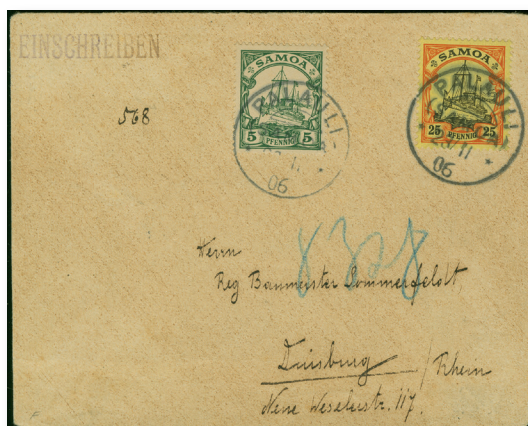 EINSCHREIBEN
568
SAMOA
5 PFENNIG 5
SAMOA
25 PFENNIG 25
PALAULI
06
PALAULI
11
06
8328
Herrn
Reg Baumeister Sommerfeldt
Duisburg / Rhein
Neue Weselerstr. 117.